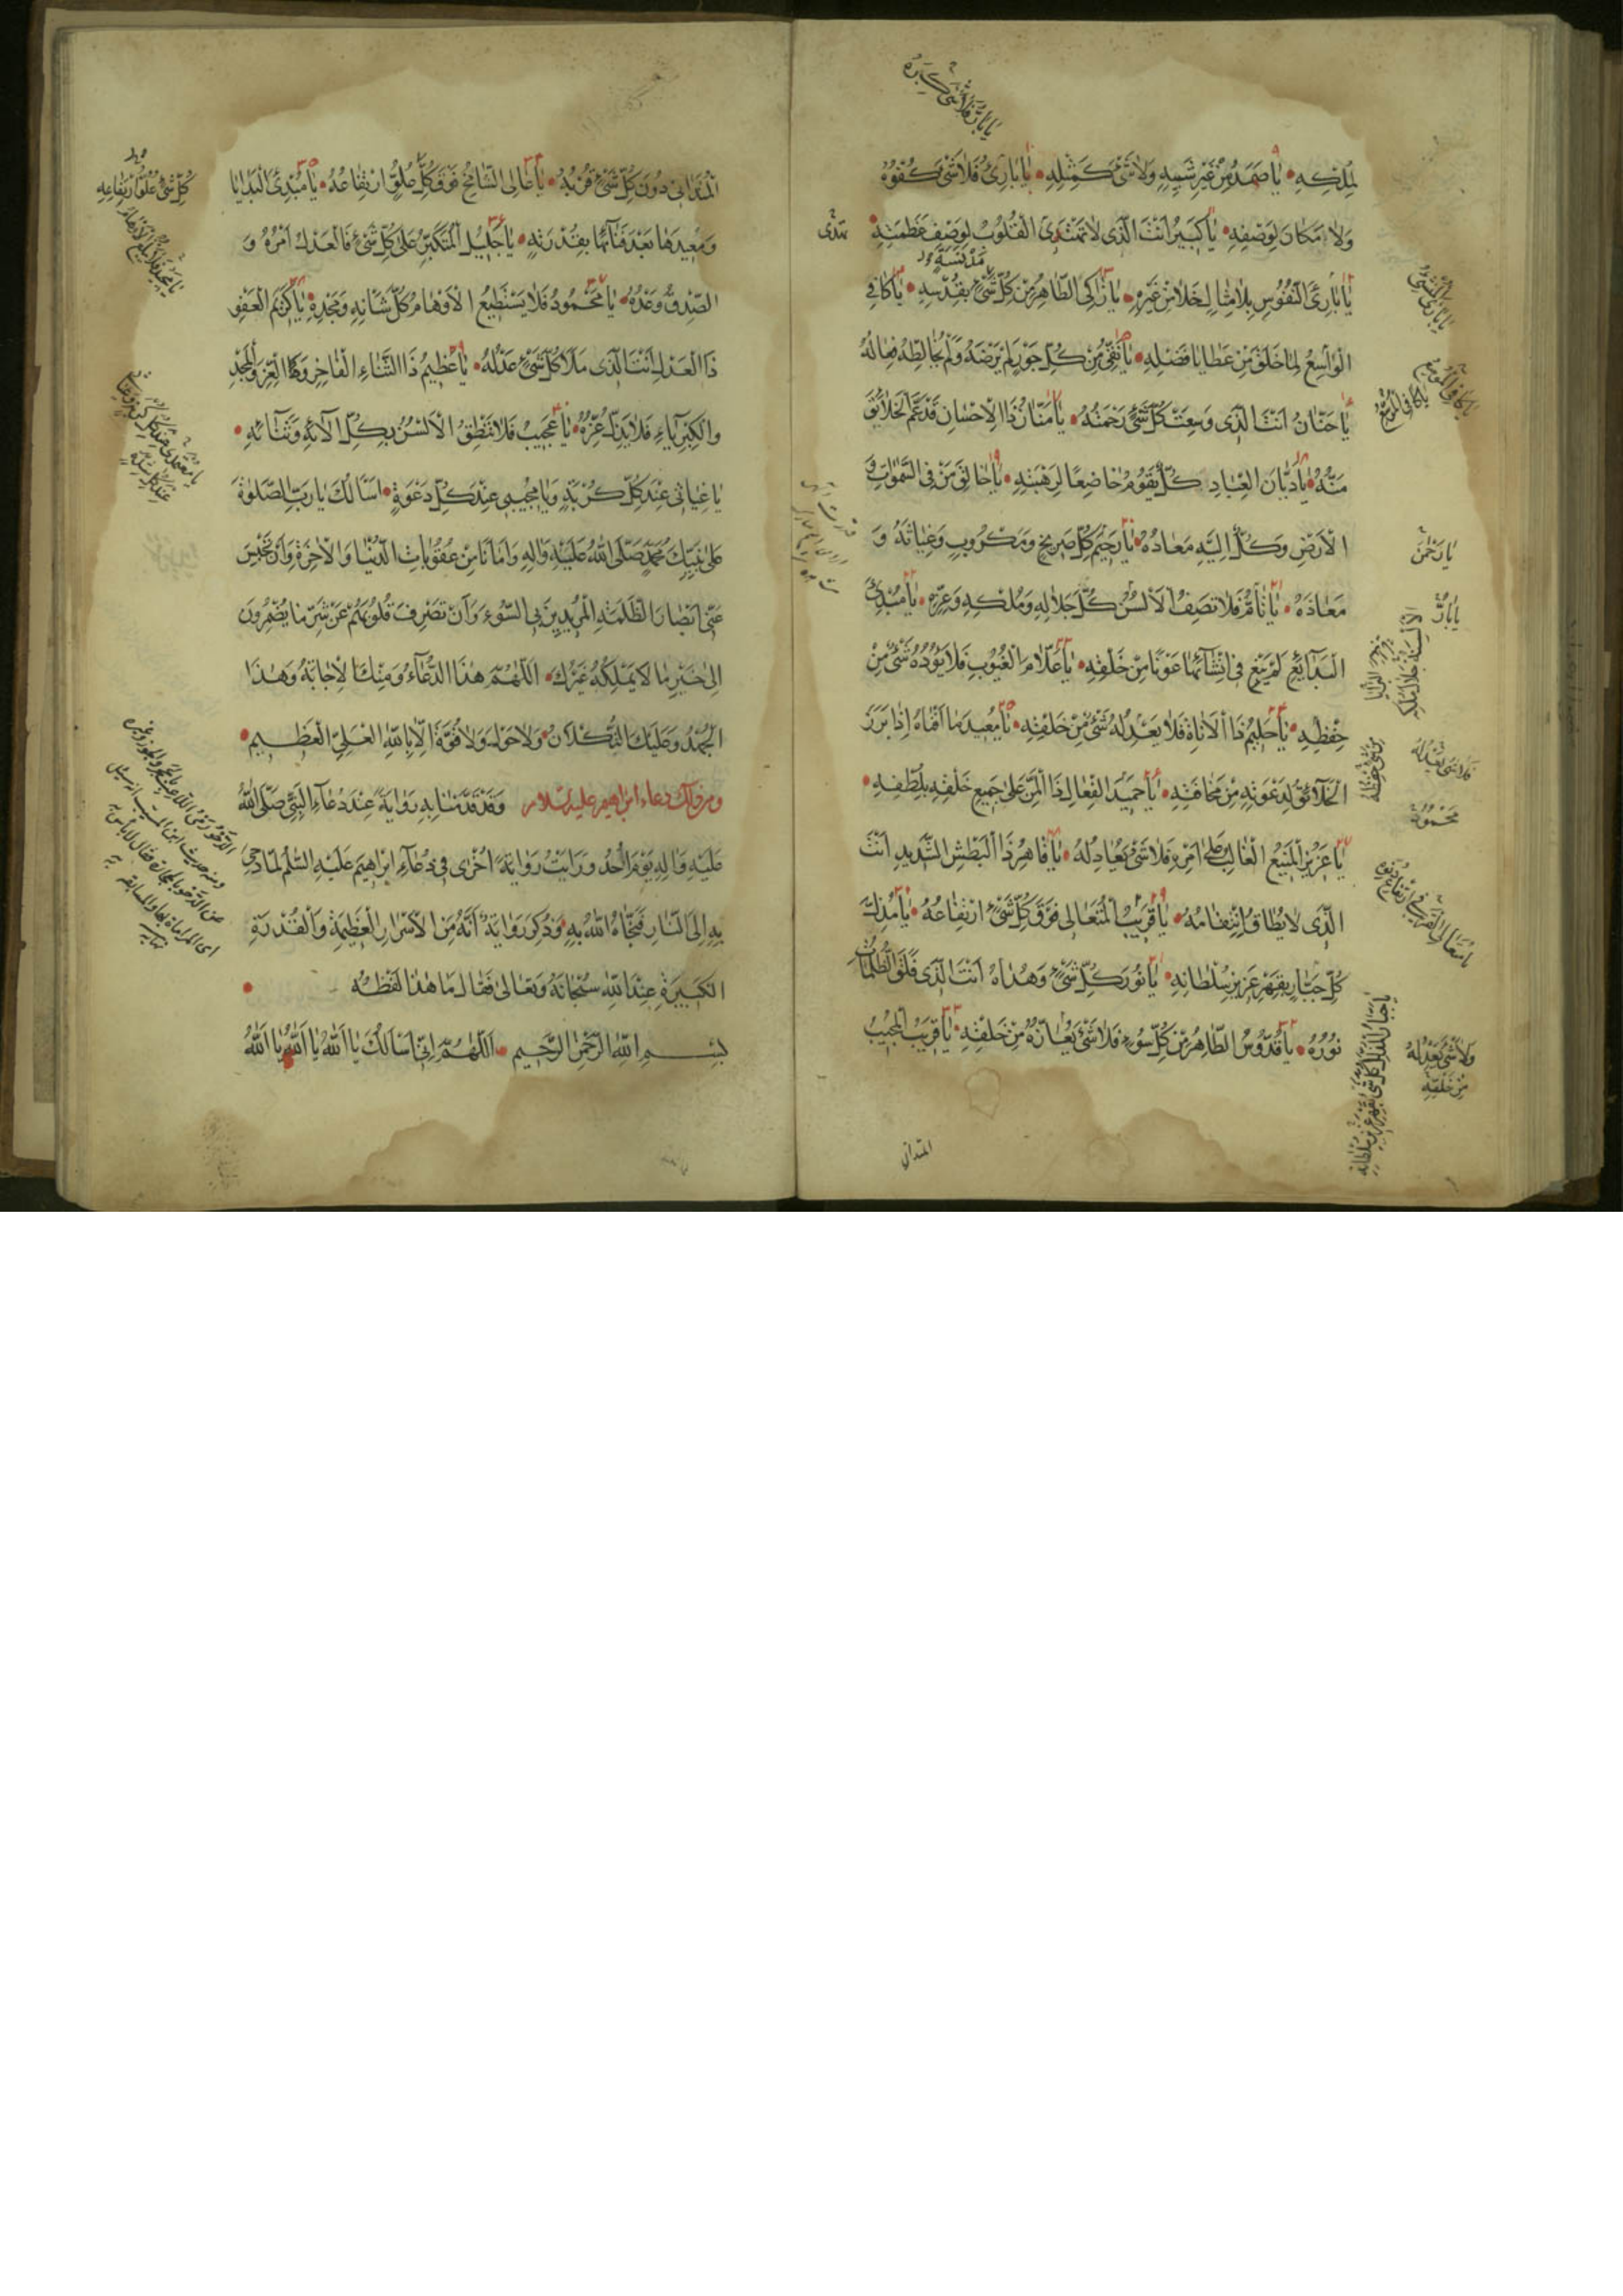 لِمُلْكِهِ يا صَمَدُ مِنْ غَيْرِ شَبيهٍ وَلا شَىْءَ كَمِثْلِهِ يا بارِئُ فَلا شَىْءَ كُفْوُهُ
وَلا مَكانَ لِوَصْفِهِ يا كَبيرُ اَنْتَ الَّذى لا تَهْتَدِى الْقُلُوبُ لِوَصْفِ عَظَمَتِهِ
يا بارِئَ النُّفُوسِ بِلا مِثالٍ خَلا مِنْ غَيْرِهِ يا زاكِى الطّاهِرُ مِنْ كُلِّ شَىْءٍ بِقُدْسِهِ يا كافِى
الْواسِعُ لِما خَلَقَ مِنْ عَطايا فَضْلِهِ يا نَقِىُّ مِنْ كُلِّ جَوْرٍ لَمْ يَرْضَهُ وَلَمْ يُخالِطْهُ فِعالُهُ
يا حَنّانُ اَنْتَ الَّذى وَسِعَتْ كُلَّ شَىْءٍ رَحْمَتُهُ يا مَنّانُ ذَا الْاِحْسانِ قَدْ عَمَّ الْخَلائِقَ
مَنُّهُ يا دَيّانَ الْعِبادِ كُلٌّ يَقُومُ خاضِعًا لِرَهْبَتِهِ يا خالِقَ مَنْ فِى السَّمواتِ وَ
الْاَرْضِ وَكُلٌّ اِلَيْهِ مَعادُهُ يا رَحيمَ كُلِّ صَريخٍ وَمَكْرُوبٍ وَغِياثَهُ وَ
مَعاذَهُ يا تامُّ فَلا تَصِفُ الْاَلْسُنُ كُلَّ جَلالِهِ وَمُلْكِهِ وَعِزِّهِ يا مُبْدِئَ
الْبَدايِعِ لَمْ يَبْغِ فى اِنْشائِها عَوْنًا مِنْ خَلْقِهِ يا عَلّامَ الْغُيُوبِ فَلا يَؤُدُهُ شَىْءٌ مِنْ
حِفْظِهِ يا حَليمُ ذَا الْاَناةِ فَلا يَعْدِلُهُ شَىْءٌ مِنْ خَلْقِهِ يا مُعيدَ ما اَفْناهُ اِذا بَرَزَ
الْخَلائِقُ لِدَعْوَتِهِ مِنْ مَخافَتِهِ يا حَميدَ الْفِعالِ ذَا الْمَنِّ عَلى جَميعِ خَلْقِهِ بِلُطْفِهِ
يا عَزيزُ الْمَنيعُ الْغالِبُ عَلى اَمْرِهِ فَلا شَىْءَ يُعادِلُهُ يا قاهِرُ ذَا الْبَطْشِ الشَّديدِ اَنْتَ
الَّذى لا يُطاقُ انْتِقامُهُ يا قَريبُ الْمُتَعالى فَوْقَ كُلِّ شَىْءٍ ارْتِفاعُهُ يا مُذِلَّ
كُلِّ جَبّارٍ بِقَهْرِ عَزيزِ سُلْطانِهِ يا نُورَ كُلِّ شَىْءٍ وَهُداهُ اَنْتَ الَّذى فَلَقَ الظُّلُماتِ
نُورُهُ يا قُدُّوسُ الطّاهِرُ مِنْ كُلِّ سُوءٍ فَلا شَىْءَ يُعازُّهُ مِنْ خَلْقِهِ يا قَريبُ الْمُجيبُ
المتدانى
يا رَحْمنُ
يا بارُّ
فَلا شَىْءَ يَعْدِلُهُ
وَلا شَىْءَ يَعْدِلُهُ
مِنْ خَلْقِهِ
الْمُتَدانى دُونَ كُلِّ شَىْءٍ قُرْبُهُ يا عالِى الشّامِخُ فَوْقَ كُلِّ عُلُوٍّ ارْتِفاعُهُ يا مُبْدِئَ الْبَدايا
وَمُعيدَها بَعْدَ فَنائِها بِقُدْرَتِهِ يا جَليلُ الْمُتَكَبِّرُ عَلى كُلِّ شَىْءٍ فَالْعَدْلُ اَمْرُهُ وَ
الصِّدْقُ وَعْدُهُ يا مَحْمُودُ فَلا يَسْتَطيعُ الْاَوْهامُ كُلَّ شَانِهِ وَمَجْدِهِ يا كَريمَ الْعَفْوِ
ذَا الْعَدْلِ اَنْتَ الَّذى مَلَاَ كُلَّ شَىْءٍ عَدْلُهُ يا عَظيمُ ذَا الثَّناءِ الْفاخِرِ وَذَا الْعِزِّ وَالْمَجْدِ
وَالْكِبْرِياءِ فَلا يَذِلُّ عِزُّهُ يا عَجيبُ فَلا تَنْطِقُ الْاَلْسُنُ بِكُلِّ الآئِهِ وَثَنائِهِ
يا غِياثى عِنْدَ كُلِّ كُرْبَةٍ وَيا مُجيبى عِنْدَ كُلِّ دَعْوَةٍ اَسْاَلُكَ يا رَبِّ الصَّلوةَ
عَلى نَبِيِّكَ مُحَمَّدٍ صَلَّى اللهُ عَلَيْهِ وَآلِهِ وَاَمانًا مِنْ عُقُوباتِ الدُّنْيا وَالْاخِرَةِ وَاَنْ تَحْبِسَ
عَنّى اَبْصارَ الظَّلَمَةِ الْمُريدينَ بِىَ السُّوءَ وَاَنْ تَصْرِفَ قُلُوبَهُمْ عَنْ شَرِّ ما يُضْمِرُونَ
اِلى خَيْرِ ما لا يَمْلِكُهُ غَيْرُكَ اَللّهُمَّ هذَا الدُّعاءُ وَمِنْكَ الْاِجابَةُ وَهذَا
الْجُهْدُ وَعَلَيْكَ التُّكْلانُ وَلا حَوْلَ وَلا قُوَّةَ اِلّا بِاللهِ الْعَلِىِّ الْعَظيمِ
ومن ذلك دعاء ابراهيم عليه السلام وَقَدْ قَدَّمْنا بِهِ رَوايَةً عِنْدَ دُعاءِ النَّبِىِّ صَلَّى اللهُ
عَلَيْهِ وَآلِهِ يَوْمَ اُحُدٍ وَرَاَيْتُ رَوايَةً اُخْرى فى دُعاءِ اِبْراهيمَ عَلَيْهِ السَّلمُ لَمّا رُمِىَ
بِهِ اِلَى النّارِ فَنَجّاهُ اللهُ بِهِ وَذَكَرَ رَوايَةً اَنَّهُ مِنَ الْاَسْرارِ الْعَظيمَةِ وَالْقُدْرَةِ
الْكَبيرَةِ عِنْدَ اللهِ سُبْحانَهُ وَتَعالى فَقالَ ما هذا لَفْظُهُ
بِسْمِ اللهِ الرَّحْمنِ الرَّحيمِ اَللّهُمَّ اِنّى اَسْاَلُكَ يا اَللهُ يا اَللهُ يا اَللهُ
كُلِّ شَىْءٍ عُلُوُّ ارْتِفاعِهِ